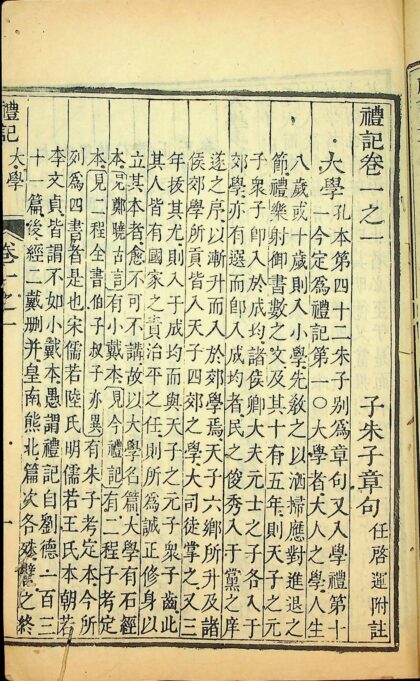 禮記卷一之一
子朱子章句 任啓運附註
大學 孔本第四十二朱子別爲章句又入學禮第十
一今定爲禮記第一○大學者大人之學人生
八歲或十歲則入小學先敎之以洒掃應對進退之
節禮樂射御書數之文及其十有五年則天子之元
子衆子卽入於成均諸侯卿大夫元士之子各入于
郊學亦有選而卽入成均者民之俊秀入于黨之庠
遂之序以漸升而入於郊學焉天子六鄉所升及諸
侯郊學所貢皆入天子四郊之學大司徒掌之又三
年拔其尤則入于成均而與天子之元子衆子齒此
其人皆有國家之責治平之任則所爲誠正修身以
立其本者愈不可不講故以大學名篇大學有石經
本見鄭曉古言有小戴本見今禮記有二程子考定
本見二程全書伯子叔子亦異有朱子考定本今所
列爲四書者是也宋儒若陸氏明儒若王氏本朝若
李文貞皆謂不如小戴本愚謂禮記自劉德一百三
十一篇後經二戴刪并皇南熊北篇次各殊讐之終
禮記 大學
卷一之一
一